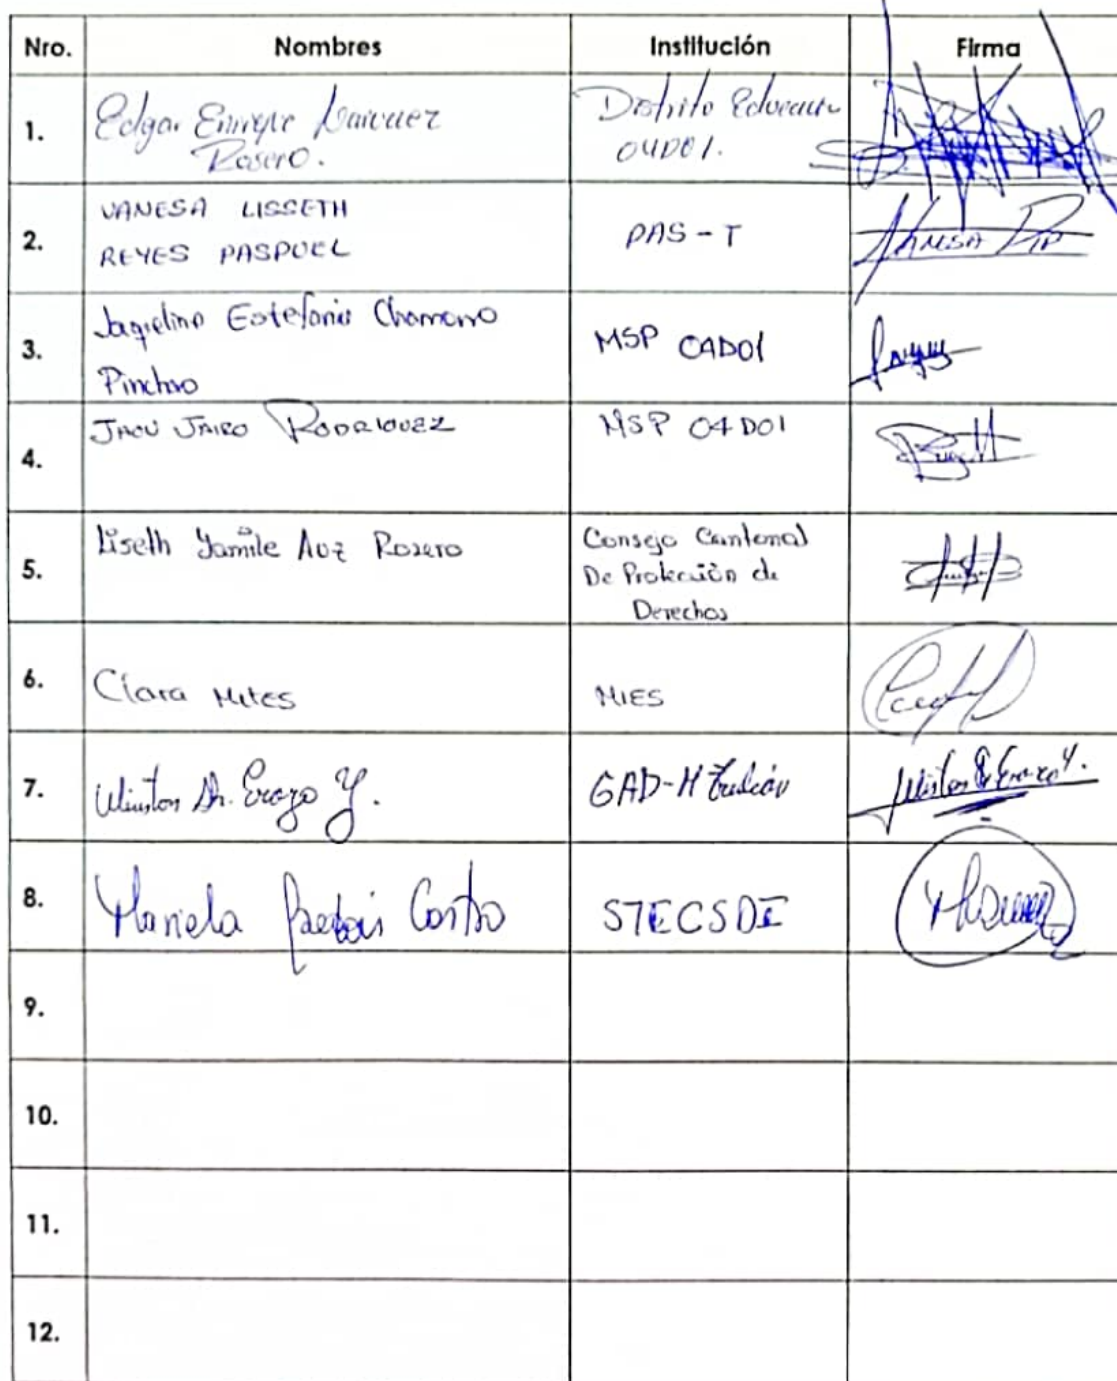 Nro. Nombres Institución Firma
1. Edgar Enrique Rosero. Distrito 04D01.
2. VANESA LISSETH
REYES PASPUEL PAS-T
3. Jaqueline Estefania Chamorro
Pinchao MSP 04D01
4. JAIRO RODRIGUEZ MSP 04D01
5. Liseth Yamile Auz Rosero Consejo Cantonal
De Protección de
Derechos
6. Clara Mites MIES
7. Winston Erazo Y. GAD-M
8. Mariela Castro STECSDI
9.
10.
11.
12.